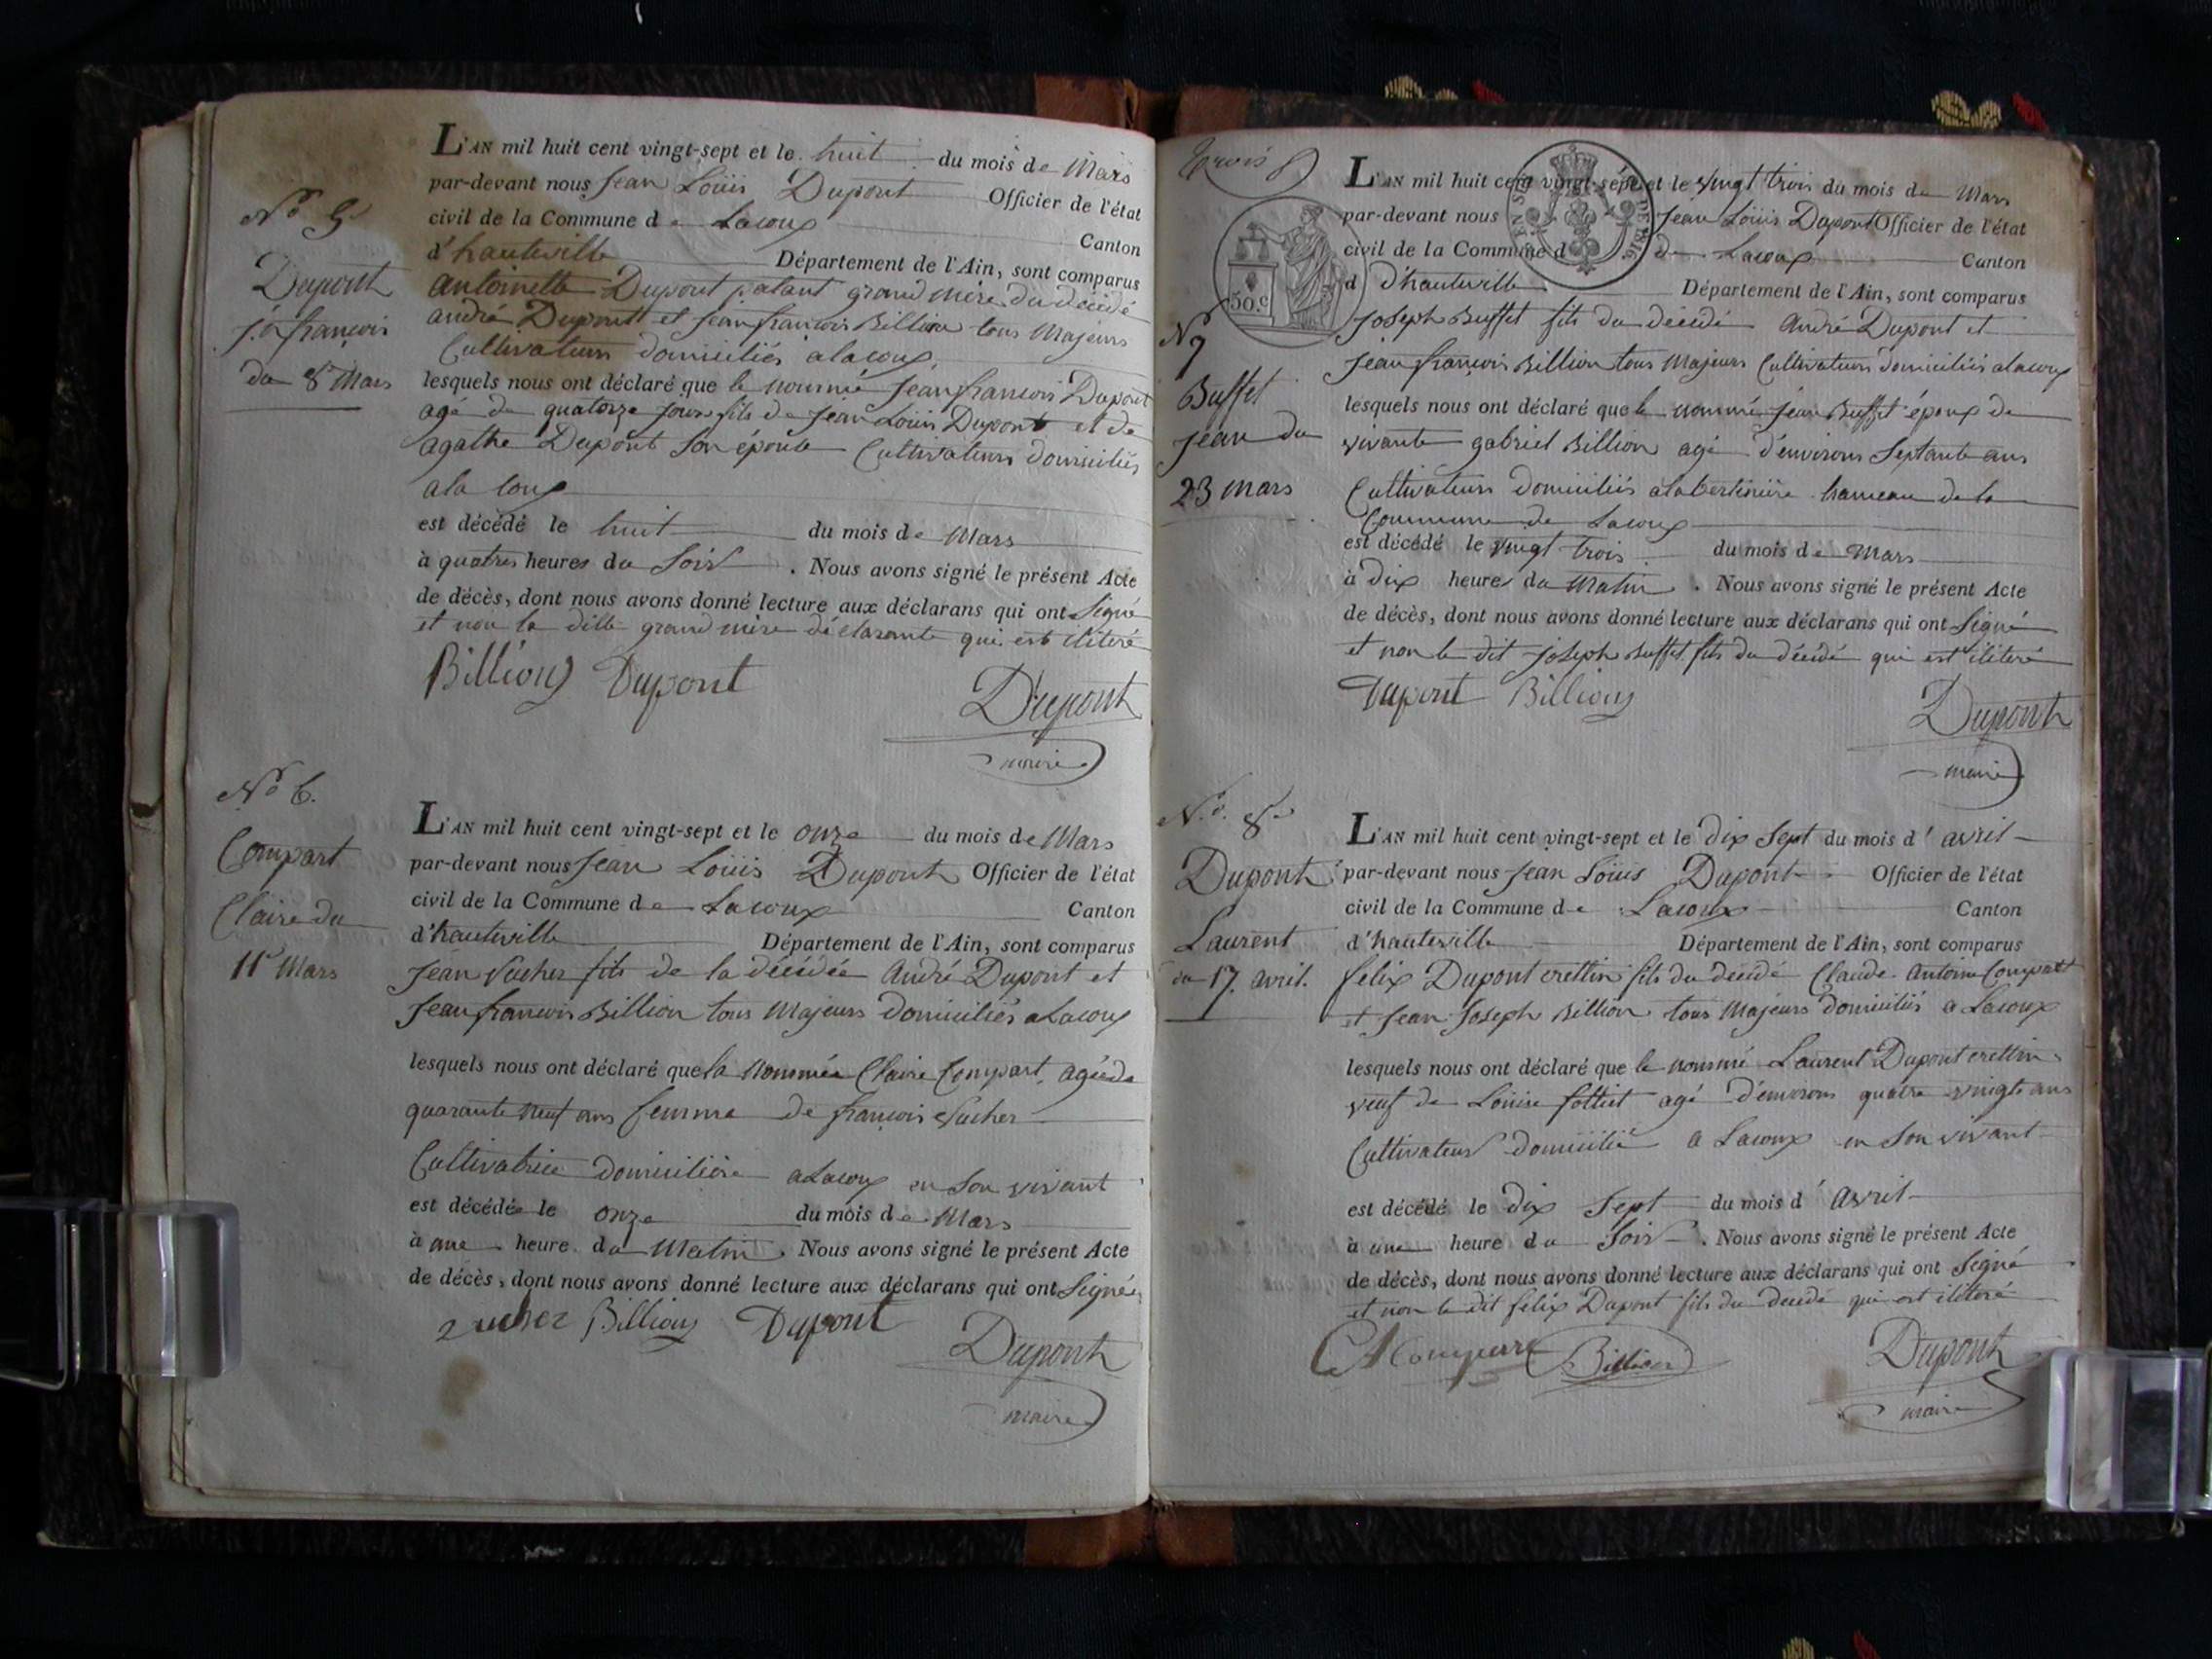 N° 5
Dupont
j.n françois
du 8 Mars
L'AN mil huit cent vingt-sept et le huit du mois de Mars
par-devant nous Jean Loüis Dupont Officier de l'état
civil de la Commune de Lacoux Canton
d'hauteville Département de l'Ain, sont comparus
Antoinette Dupont grand mère du décédé
andré Dupont et jean françois Billion tous Majeurs
Cultivateurs domiciliés alacoux
lesquels nous ont déclaré que le nommé Jean françois Dupont
agé de quatorze jours fils de Jean Loüis Dupont et de
agathe Dupont son épouse Cultivateurs domiciliés
ala coux
est décédé le huit du mois de Mars
à quatres heures du Soir. Nous avons signé le présent Acte
de décès, dont nous avons donné lecture aux déclarans qui ont Signé
et non la ditte grand mère déclarante qui est iliteré
Billion Dupont
Dupont
maire
N° 6.
Compart
Claire du
11 Mars
L'AN mil huit cent vingt-sept et le onze du mois de Mars
par-devant nous Jean Loüis Dupont Officier de l'état
civil de la Commune de Lacoux Canton
d'hauteville Département de l'Ain, sont comparus
Jean Vucher fils de la décédée André Dupont et
Jean françois Billion tous Majeurs domiciliés aLacoux
lesquels nous ont déclaré que la Nommée Claire Compart, agée de
quarante neuf ans femme de françois Vucher
Cultivatrice domicilière aLacoux en son vivant
est décédée le onze du mois de Mars
à une heure du Matin. Nous avons signé le présent Acte
de décès, dont nous avons donné lecture aux déclarans qui ont Signé
Billion Dupont
Dupont
maire
trois
50.c
N° 7
Buffet
Jean du
23 mars
L'AN mil huit cent vingt-sept et le vingt trois du mois de Mars
par-devant nous Jean Loüis Dupont Officier de l'état
civil de la Commune d de Lacoux Canton
d d'hauteville Département de l'Ain, sont comparus
joseph Buffet fils du décédé André Dupont et
jean françois Billion tous Majeurs Cultivateurs domiciliés alacoux
lesquels nous ont déclaré que le nommé jean Buffet époux de
vivante gabriel Billion agé d'environs Septante ans
Cultivateurs domiciliés hameau de la
Commune de Lacoux
est décédé le vingt trois du mois de Mars
à dix heures du Matin. Nous avons signé le présent Acte
de décès, dont nous avons donné lecture aux déclarans qui ont Signé
et non le dit joseph Buffet fils du décédé qui est iliteré
Dupont Billion
Dupont
maire
N°. 8
Dupont
Laurent
du 17. avril.
L'AN mil huit cent vingt-sept et le dix Sept du mois d'avril
par-devant nous Jean Loüis Dupont Officier de l'état
civil de la Commune de Lacoux Canton
d'hauteville Département de l'Ain, sont comparus
felix Dupont crettin fils du décédé Claude Antoine Compart
et Jean Joseph Billion tous Majeurs domiciliés a Lacoux
lesquels nous ont déclaré que le nommé Laurent Dupont crettin
veuf de Loüise agé d'environs quatre vingts ans
Cultivateur domicilié a Lacoux en son vivant
est décédé le dix Sept du mois d'avril
à une heure du Soir. Nous avons signé le présent Acte
de décès, dont nous avons donné lecture aux déclarans qui ont Signé
et non le dit felix Dupont fils du décédé qui est iliteré
Billion
Dupont
maire